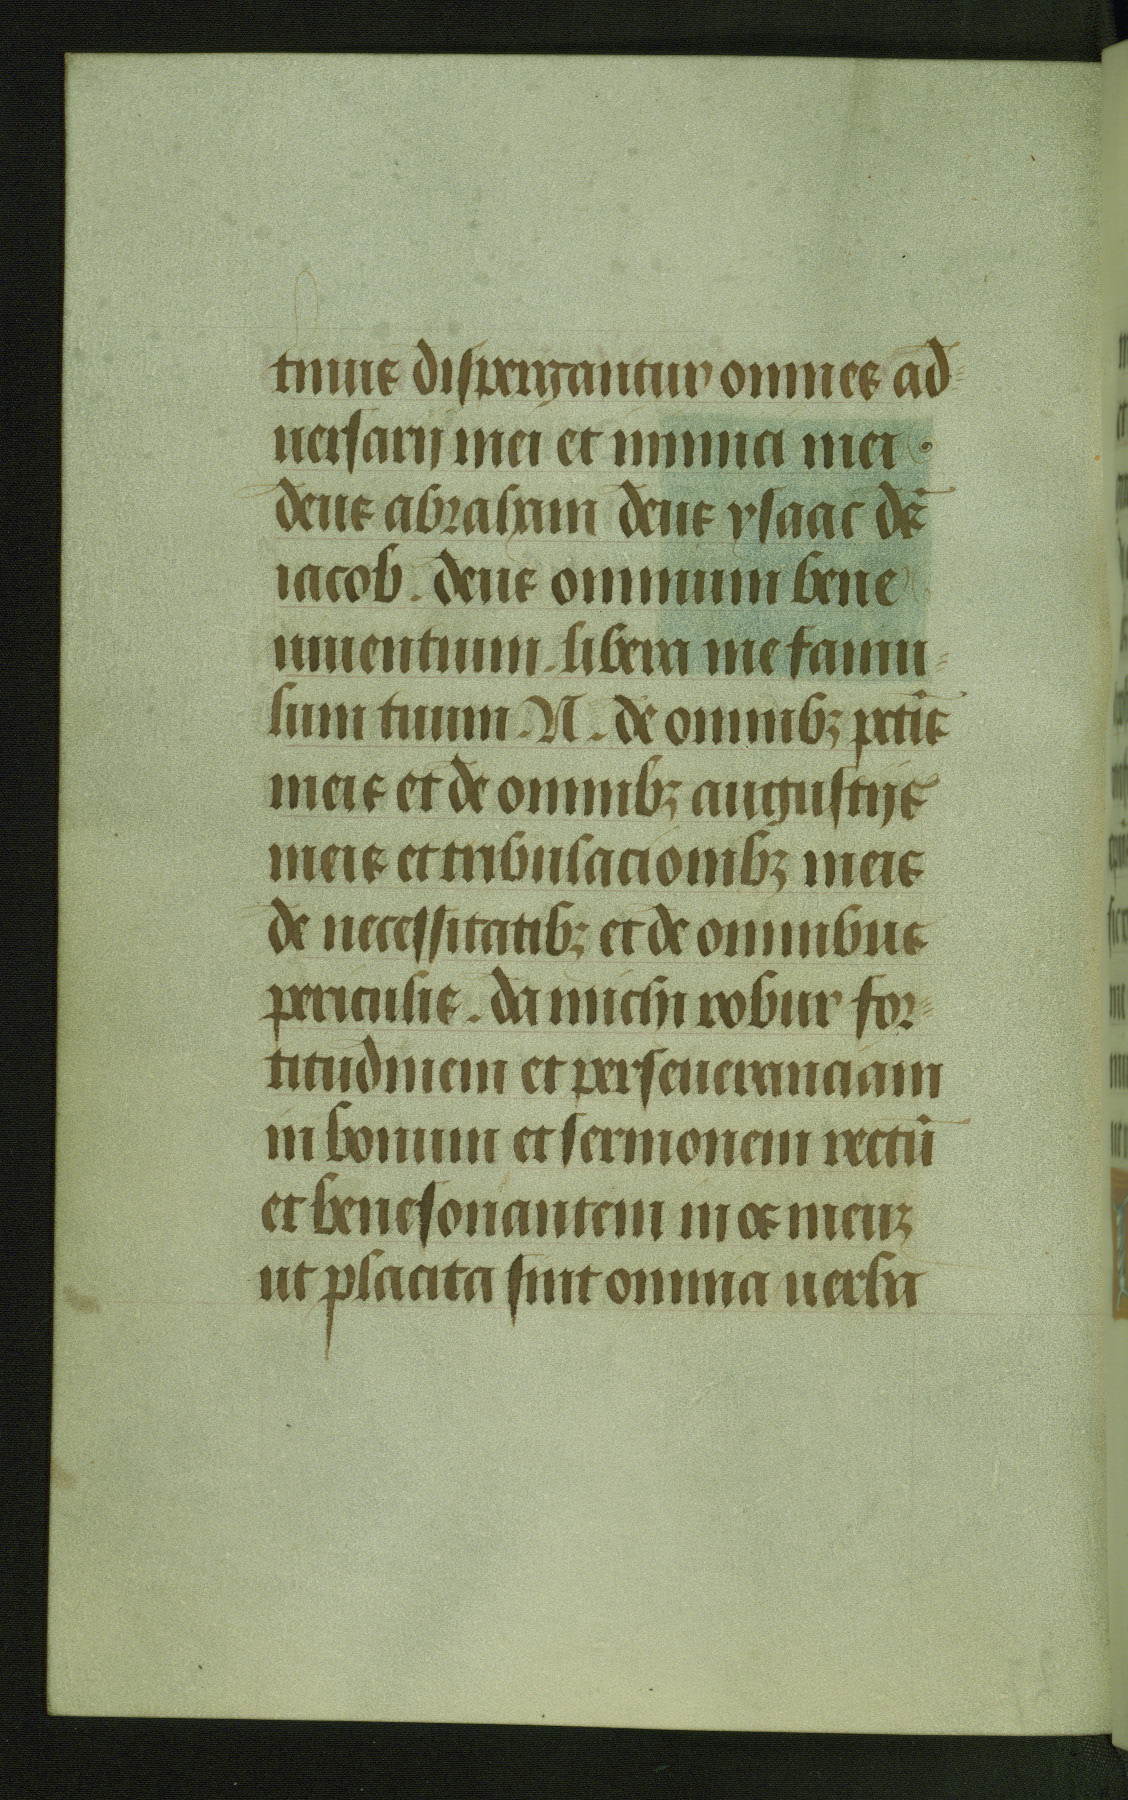 tuus dispergantur omnes ad=
uersarij mei et inimici mei
deus abraham deus ysaac de͂
iacob. deus omnium bene
uiuentium. libera me famu=
lum tuum .N. de omnibꝫ pctis̃
meis et de omnibꝫ angustijs
meis et tribulacionibꝫ meis
de necessitatibꝫ et de omnibus
periculis. da michi robur for=
titudinem et perseueranciam
in bonum et sermonem rectũ
et benesonantem in os meuꝫ
ut placita sint omnia uerba